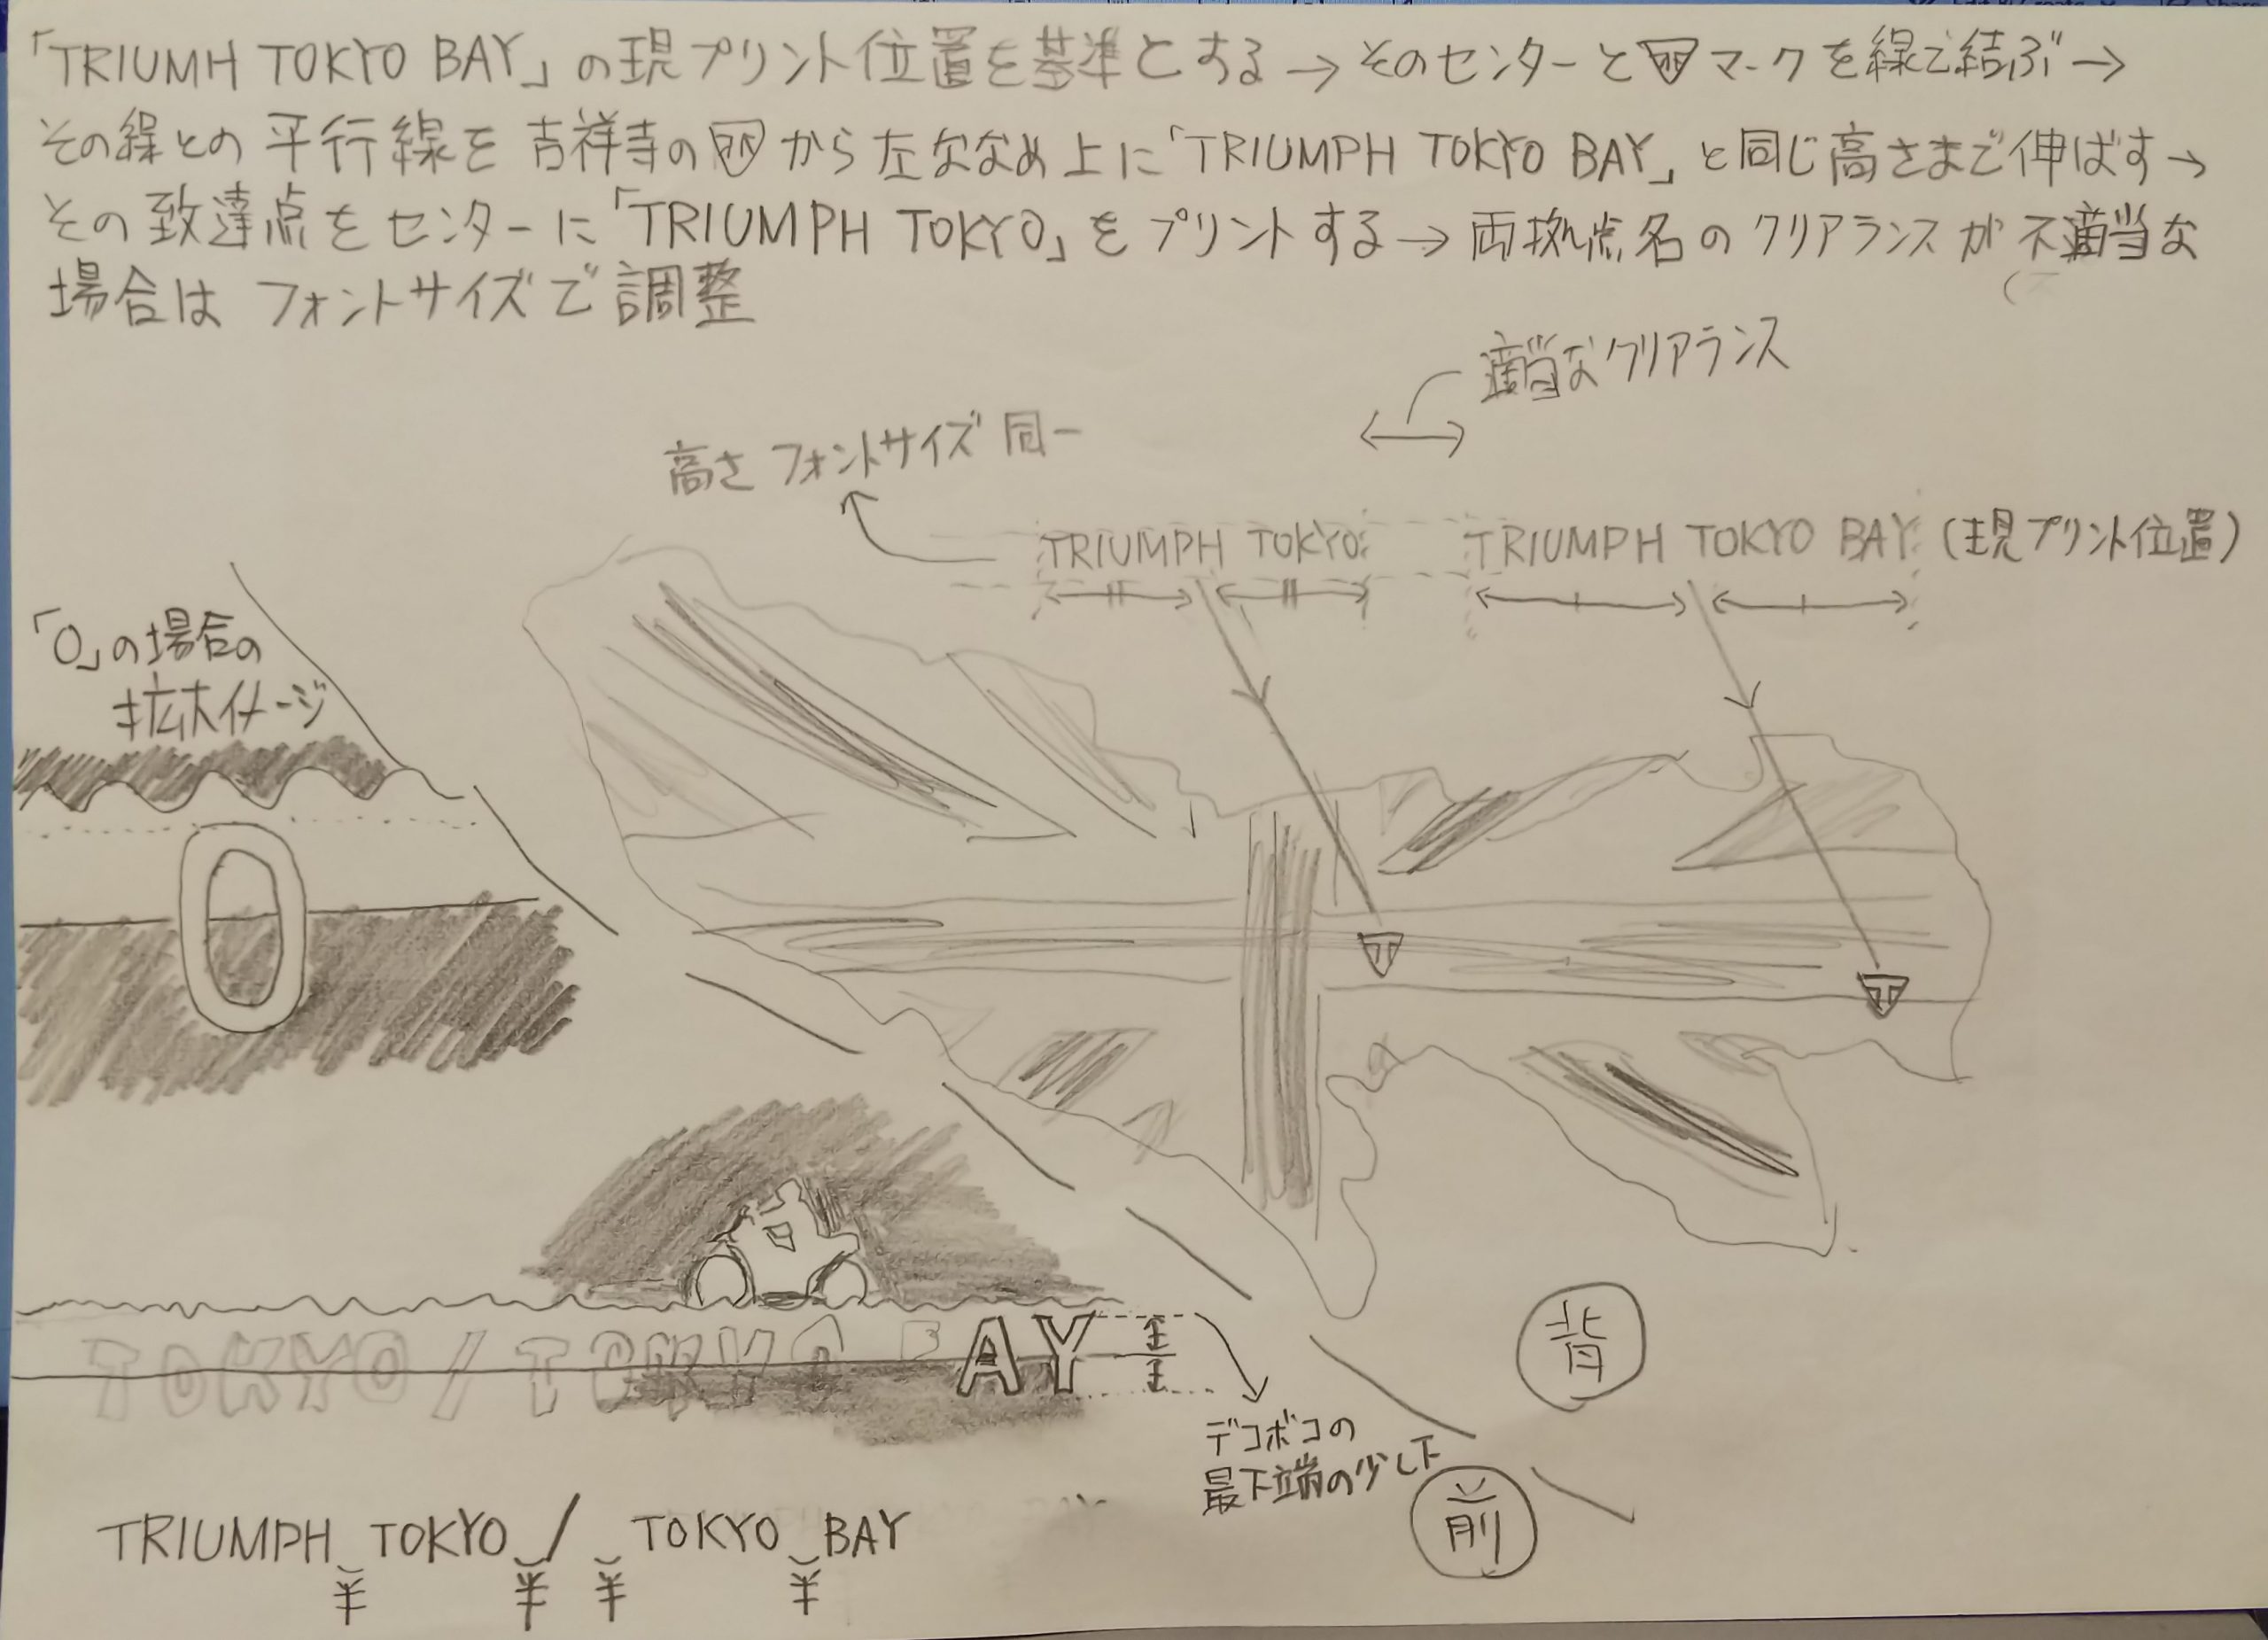 「TRIUMH TOKYO BAY」の現プリント位置を基準とする→そのセンターとマークを線で結ぶ→
その線との平行線を吉祥寺のから左ななめ上に「TRIUMPH TOKYO BAY」と同じ高さまで伸ばす→
その致達点をセンターに「TRIUMPH TOKYO」をプリントする→両拠点名のクリアランスが不適当な
場合はフォントサイズで調整
適当なクリアランス
高さフォントサイズ同一
TRIUMPH TOKYO
TRIUMPH TOKYO BAY (現プリント位置)
「O」の場合の
拡大イメージ
O
TOKYO/TOKYO BAY
デコボコの
最下端の少し下
背
前
TRIUMPH TOKYO / TOKYO BAY
半 半 半 半